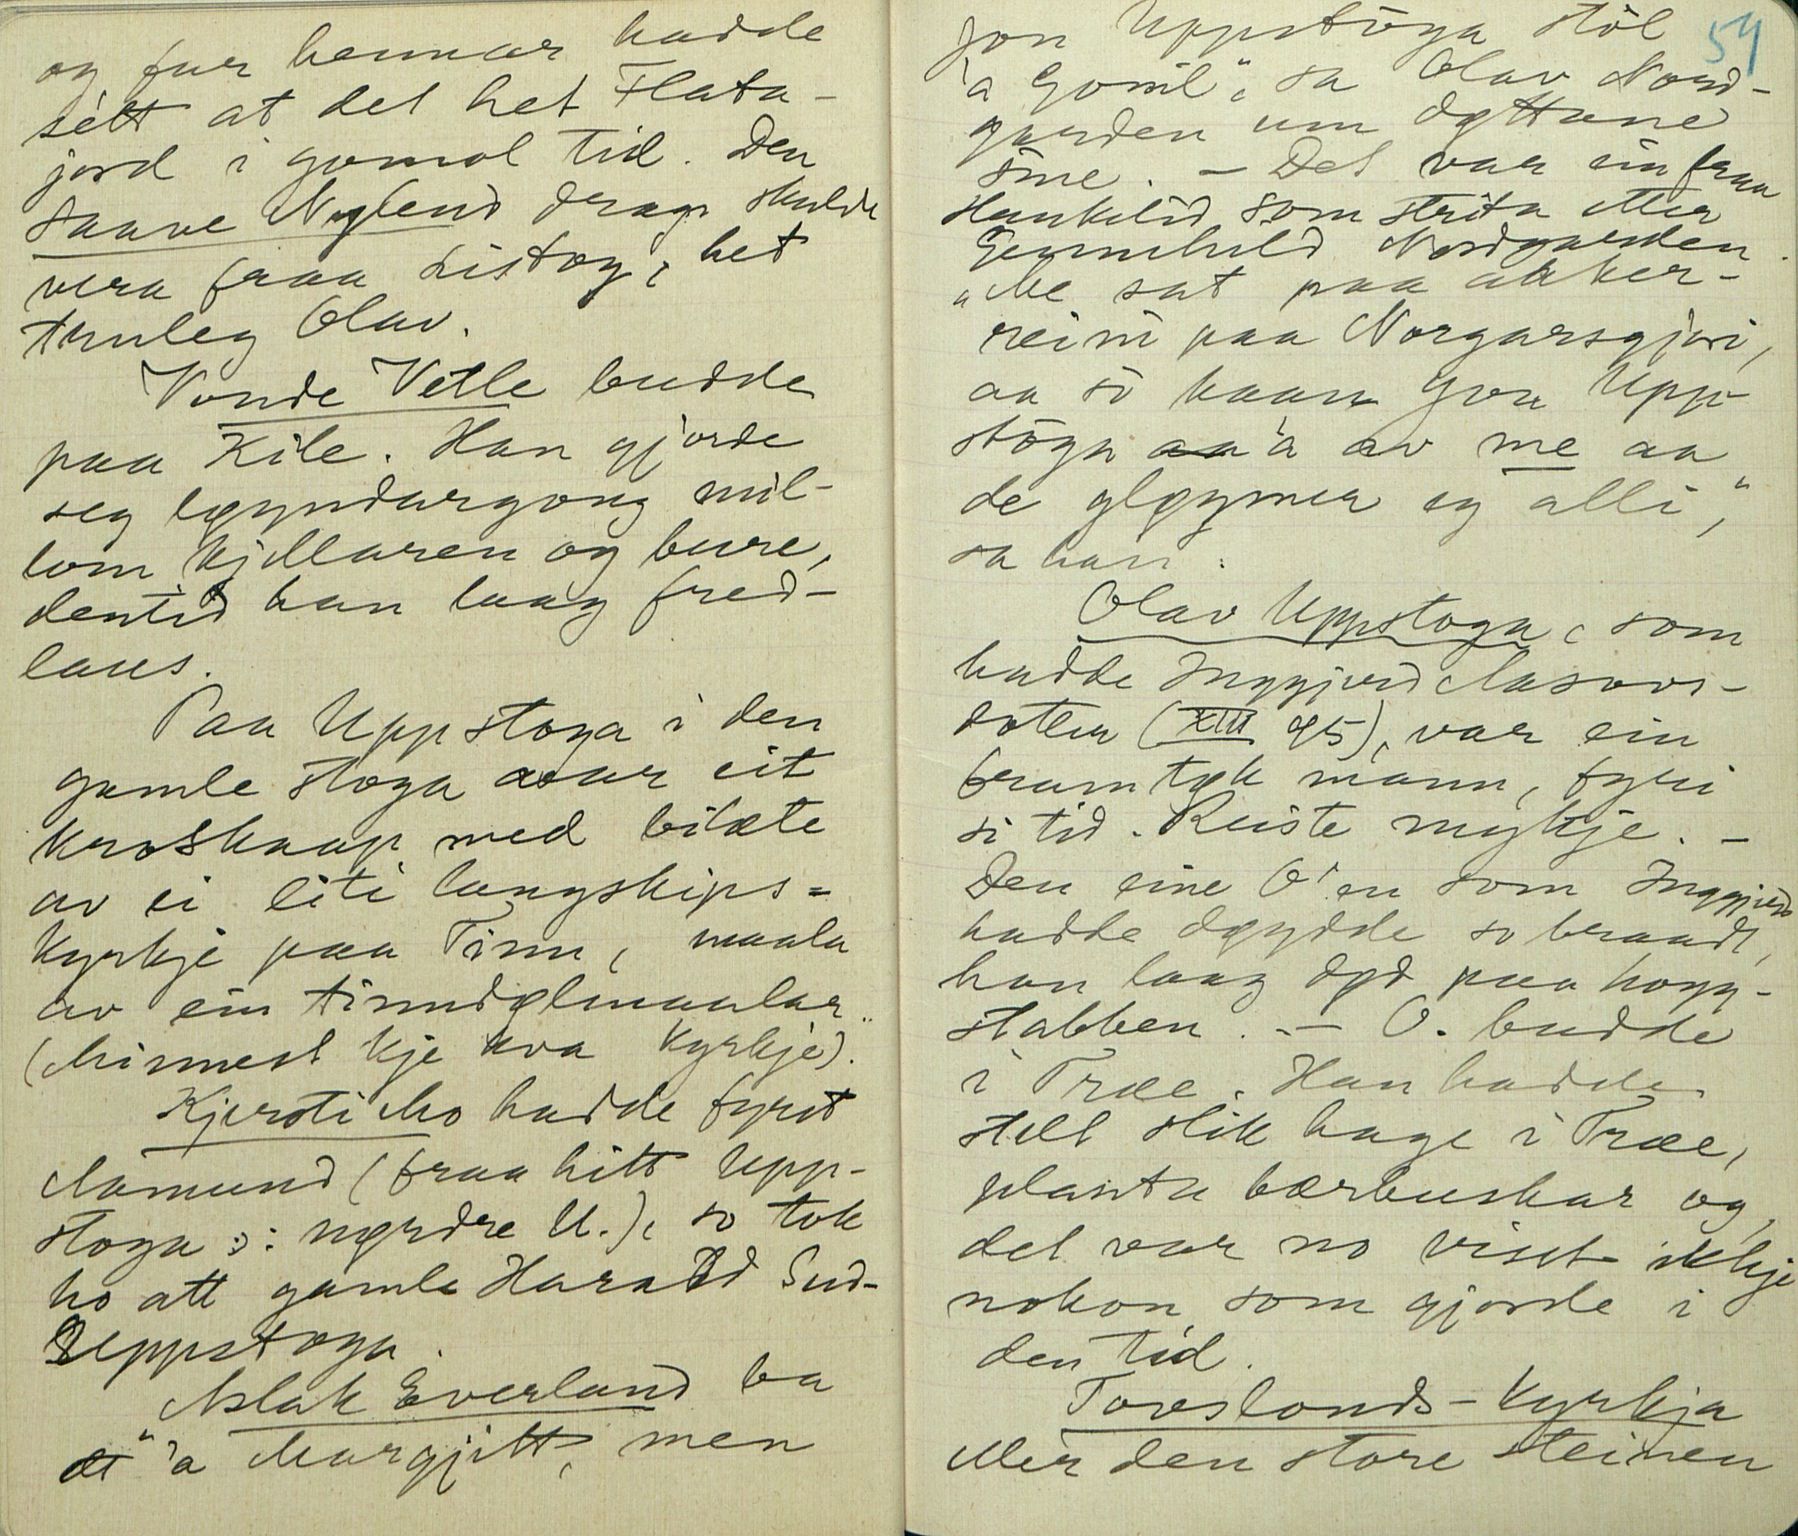 og far hennar hadde
sétt at det het Flata-
jord i gomol tid. Den
saave Nylend drap skulde
vera fraa Listog, het
truleg Olav.
Vonde Vetle budde
paa Kile. Han gjorde
seg løyndargong mil-
lom kjellaren og bure,
dentid han laag fred-
laus.
Paa Uppstoga i den
gamle stoga var eit
kroskaap med bilæte
av ei liti langskips-
kyrkje paa Tinn, maala
av ein tinndølmaalar
(Minnest kje kva kyrkje).
Kjersti Mo hadde fyrst
Aamund (fraa hitt Upp-
stoga ɔ: nørdre U.), so tok
ho att gamle Harald Sud-
Uppstoga.
Aslak Everland ba
"à Margjitt, men
54
Jon Uppstöga stöl
à Gonil", sa Olav Nord-
garden um døttane
sine. – Det var ein fraa
Haukelid som strita etter
Gunnhild Nordgarden.
"Me sat paa aaker-
reini paa Norgarsgjori,
aa so kaam Jon Upp-
stöga à av me aa
de gløymer eg alli",
sa han.
Olav Uppstoga, som
hadde Inggjerd Aasovs-
dotter (XIII 95), var ein
framtøk mann, fyri
si tid. Reiste mykje. –
Den eine O'en som Inggjerd
hadde døydde so braadt,
han laag død paa hogg-
stabben. – O. budde
i Træe. Han hadde
stelt slik hage i Træe,
planta bærbuskar og
det var no visst ikkje
nokon som gjorde i
den tid.
Tovslonds-kyrkja
Mèr den store steinen